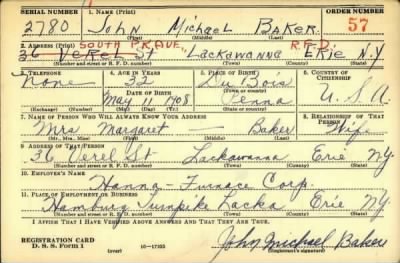 SERIAL NUMBER 1. NAME (Print) ORDER NUMBER
2780 JOHN MICHAEL BAKER 57
(First) (Middle) (Last)
2. ADDRESS (Print) SOUTH PK AVE. R.F.D.
36 VEREL ST LACKAWANNA ERIE N.Y
(Number and street or R. F. D. number) (Town) (County) (State)
3. TELEPHONE 4. AGE IN YEARS 5. PLACE OF BIRTH 6. COUNTRY OF CITIZENSHIP
None 32 Du Bois
DATE OF BIRTH (Town or county)
May 11 1908 Penna U.S.A
(Exchange) (Number) (Mo.) (Day) (Yr.) (State or country)
7. NAME OF PERSON WHO WILL ALWAYS KNOW YOUR ADDRESS 8. RELATIONSHIP OF THAT PERSON
Mrs Margaret — Baker Wife
(Mr., Mrs., Miss) (First) (Middle) (Last)
9. ADDRESS OF THAT PERSON
36 Verel St Lackawanna Erie N.Y.
(Number and street or R. F. D. number) (Town) (County) (State)
10. EMPLOYER'S NAME
Hanna - Furnace Corp.
11. PLACE OF EMPLOYMENT OR BUSINESS
Hamburg Turnpike Lacka Erie N.Y.
(Number and street or R. F. D. number) (Town) (County) (State)
I AFFIRM THAT I HAVE VERIFIED ABOVE ANSWERS AND THAT THEY ARE TRUE.
REGISTRATION CARD
D. S. S. FORM 1 (over) 16—17105 John Michael Baker
(Registrant's signature)